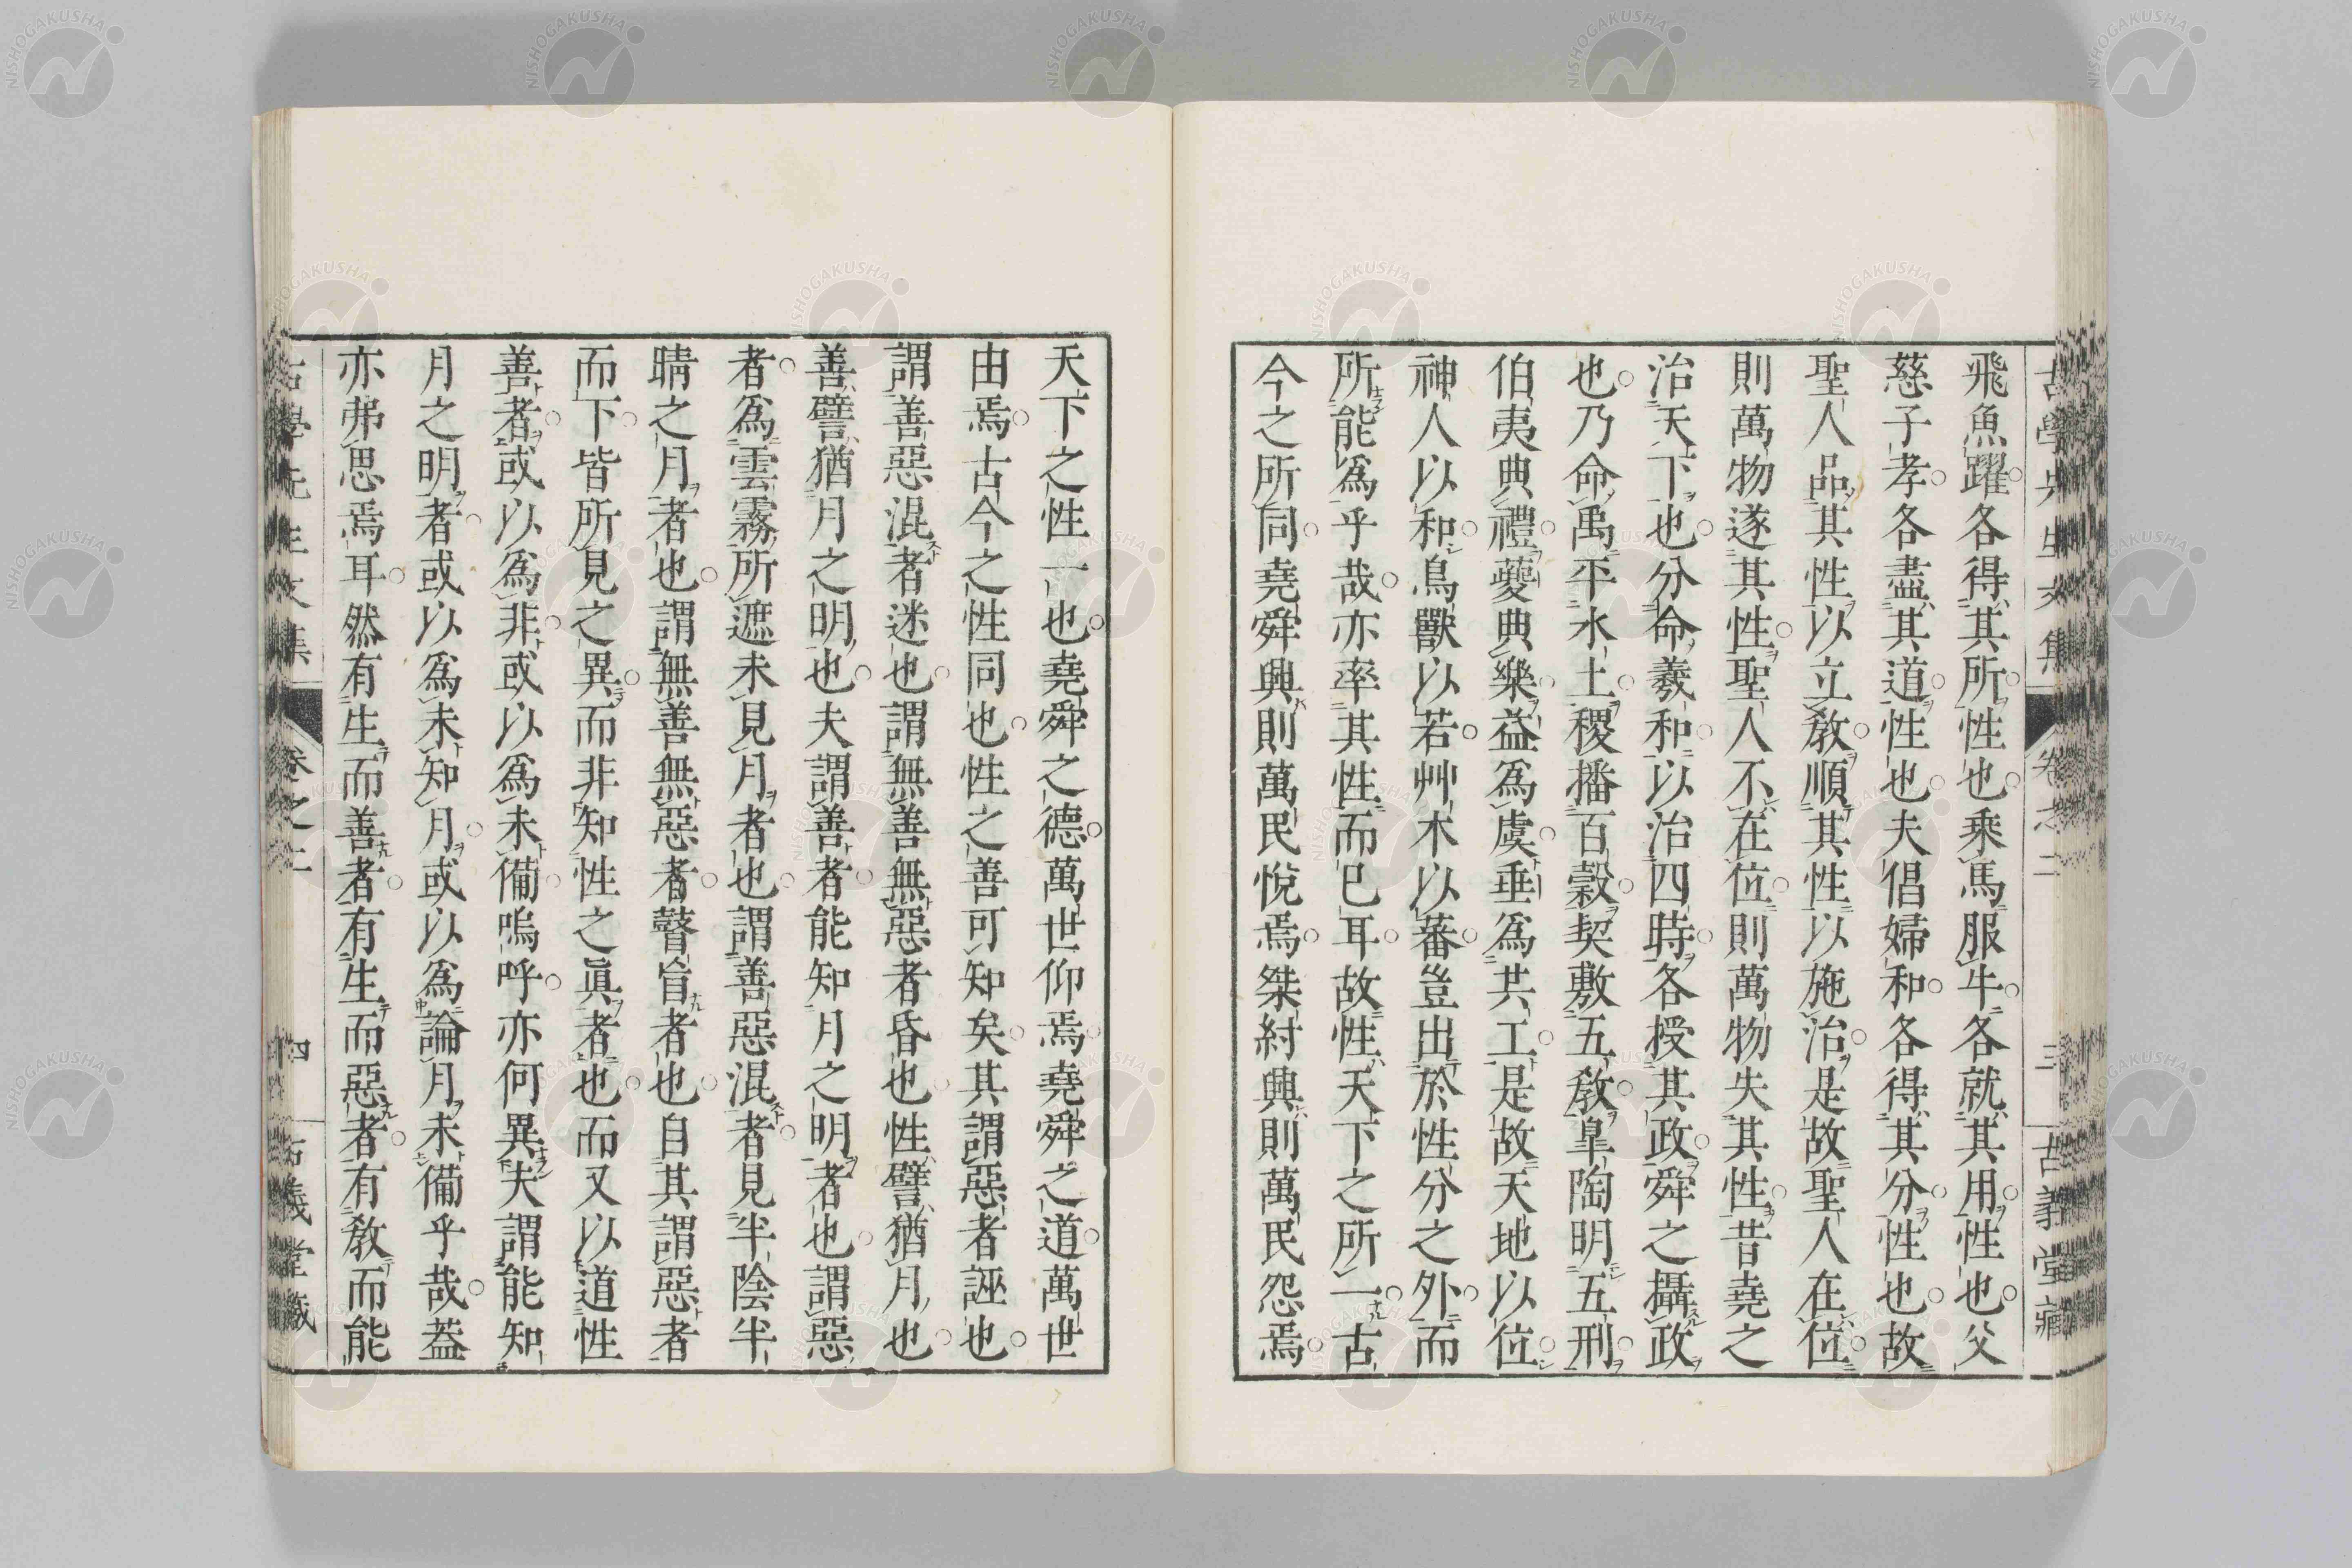 古學先生文集 卷之二 三 古義堂藏
飛魚躍各得其所性也乘馬服牛各就其用性也父
慈子孝各盡其道性也夫倡婦和各得其分性也故
聖人品其性以立敎順其性以施治是故聖人在位
則萬物遂其性聖人不在位則萬物失其性昔堯之
治天下也分命羲和以治四時各授其政舜之攝政
也乃命禹平水土稷播百穀契敷五敎皐陶明五刑
伯夷典禮夔典樂益爲虞垂爲共工是故天地以位
神人以和鳥獸以若艸木以蕃豈出於性分之外而
所能爲乎哉亦率其性而已耳故性天下之所一古
今之所同堯舜興則萬民悅焉桀紂興則萬民怨焉
天下之性一也堯舜之德萬世仰焉堯舜之道萬世
由焉古今之性同也性之善可知矣其謂惡者誣也
謂善惡混者迷也謂無善無惡者昏也性譬猶月也
善譬猶月之明也夫謂善者能知月之明者也謂惡
者爲雲霧所遮未見月者也謂善惡混者見半陰半
晴之月者也謂無善無惡者瞽盲者也自其謂惡者
而下皆所見之異而非知性之眞者也而又以道性
善者或以爲非或以爲未備嗚呼亦何異夫謂能知
月之明者或以爲未知月或以爲論月未備乎哉蓋
亦弗思焉耳然有生而善者有生而惡者有敎而能
古學先生文集 卷之二 四 古義堂藏
NISHOGAKUSHA